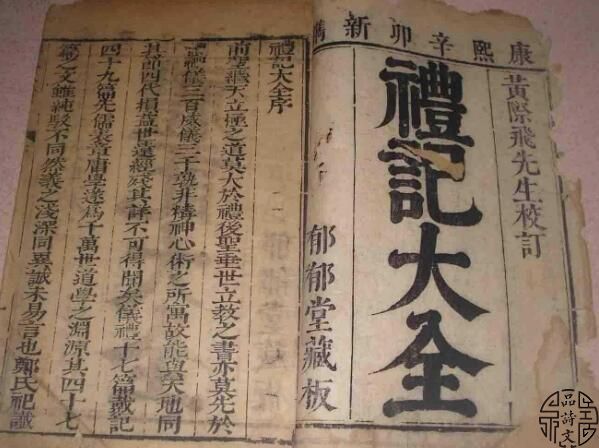 康熙辛卯新鐫
黃際飛先生校訂
禮記大全
郁郁堂藏板
禮記大全序
前聖繼天立極之道莫大於禮後聖垂世立教之書亦莫先於
禮儀三百威儀三千孰非精神心術之所寓故能與天地同
其節四代損益世遠經殘其詳不可得聞矣儀禮十七篇戴記
四十九篇先儒表章庸學遂爲千萬世道學之淵源其四十七
篇之文雖純駁不同然義之淺深同異誠未易言也鄭氏祀讖
品詩文